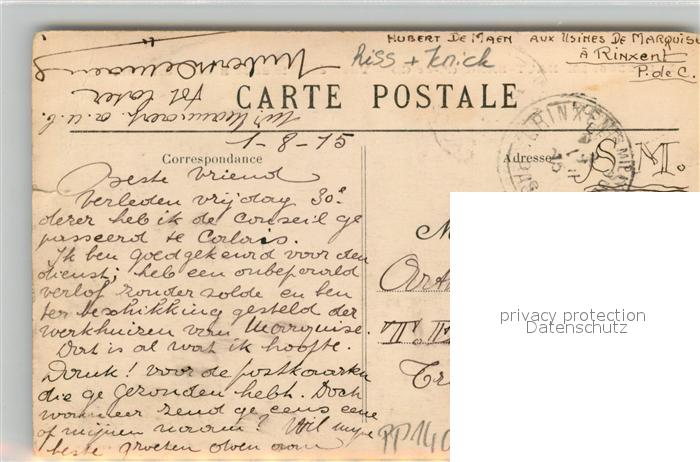 HUBERT DE MAEN AUX USINES DE MARQUISE
À RINXENT
P. de C.
Riss + Knick
Hubert Demaeng
tot later
CARTE POSTALE
1-8-15
Correspondance
Adresse
RINXENT
S. M.
Beste Vriend
Verleden vrijdag 30e
derer heb ik de Conseil ge
passeerd te Calais.
Ik ben goedgekeurd voor den
dienst; heb een onbepaald
verlof zonder solde en ben
ter beschikking gesteld der
werkhuizen van Marquise.
Dat is al wat ik hoopte.
Dank! voor de postkaarten
die ge gezonden hebt. Doch
wanneer zend ge eens eene
of mijnen naam? Wil mijne
beste groeten doen aan
privacy protection
Datenschutz